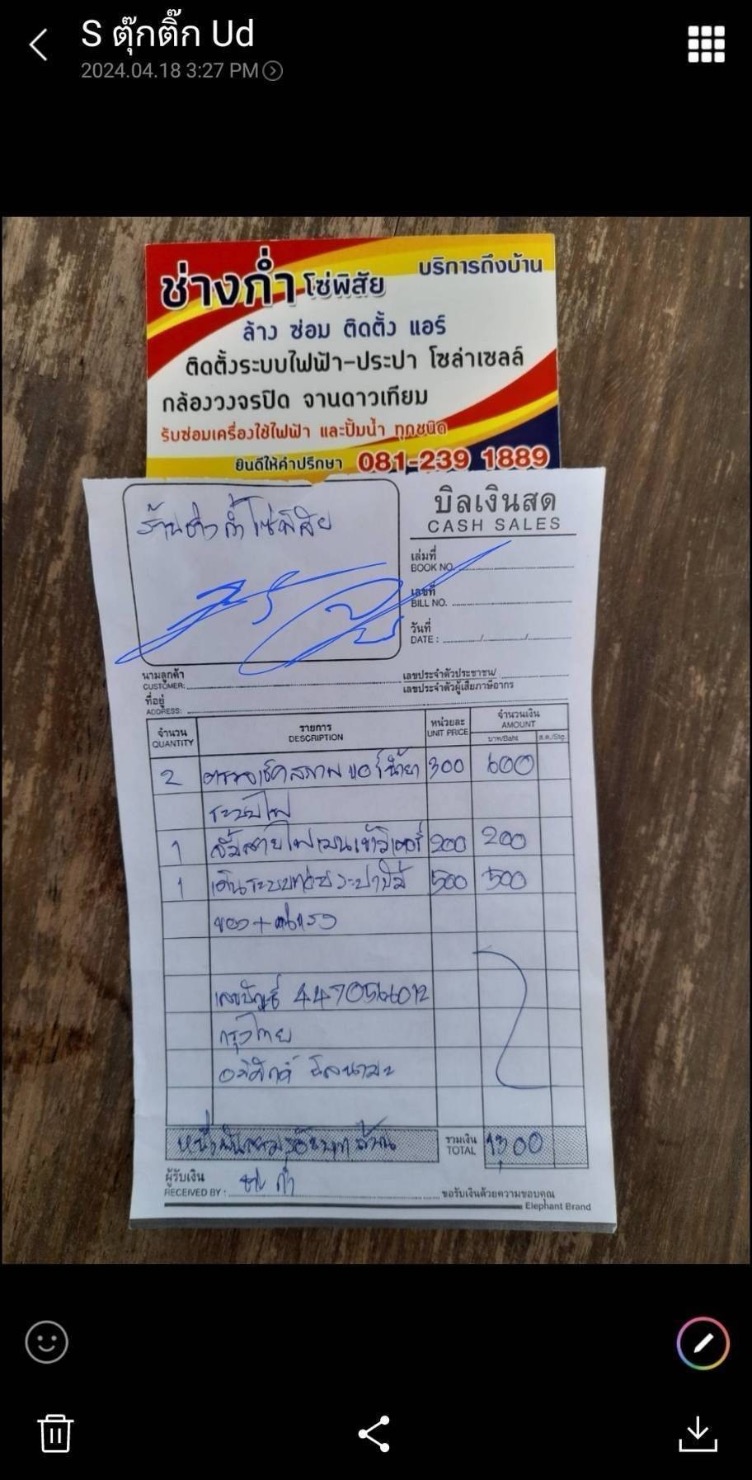 S ตุ๊กติ๊ก Ud
2024.04.18 3:27 PM
ช่างก่ำ โซ่พิสัย บริการถึงบ้าน
ล้าง ซ่อม ติดตั้ง แอร์
ติดตั้งระบบไฟฟ้า-ประปา โซล่าเซลล์
กล้องวงจรปิด จานดาวเทียม
รับซ่อมเครื่องใช้ไฟฟ้า และปั้มน้ำ ทุกชนิด
ยินดีให้คำปรึกษา 081-239 1889
ร้านช่างก่ำโซ่พิสัย
บิลเงินสด
CASH SALES
เล่มที่
BOOK NO.
เลขที่
BILL NO.
วันที่
DATE :
นามลูกค้า
CUSTOMER:
เลขประจำตัวประชาชน/
เลขประจำตัวผู้เสียภาษีอากร
ที่อยู่
ADDRESS:
จำนวน รายการ หน่วยละ จำนวนเงิน
QUANTITY DESCRIPTION UNIT PRICE AMOUNT
บาท/Baht ส.ต./Stg.
2 ตรวจเช็คสภาพแอร์น้ำยา 300 600
ระบบไฟ
1 สายไฟเมนเข้ามิเตอร์ 200 200
1 เดินระบบท่อประปา 500 500
ของ+ค่าแรง
เลขบัญชี
กรุงไทย
หนึ่งพันสามร้อยบาทถ้วน รวมเงิน 1300
TOTAL
ผู้รับเงิน
RECEIVED BY : ช่างก่ำ ขอรับเงินด้วยความขอบคุณ
Elephant Brand